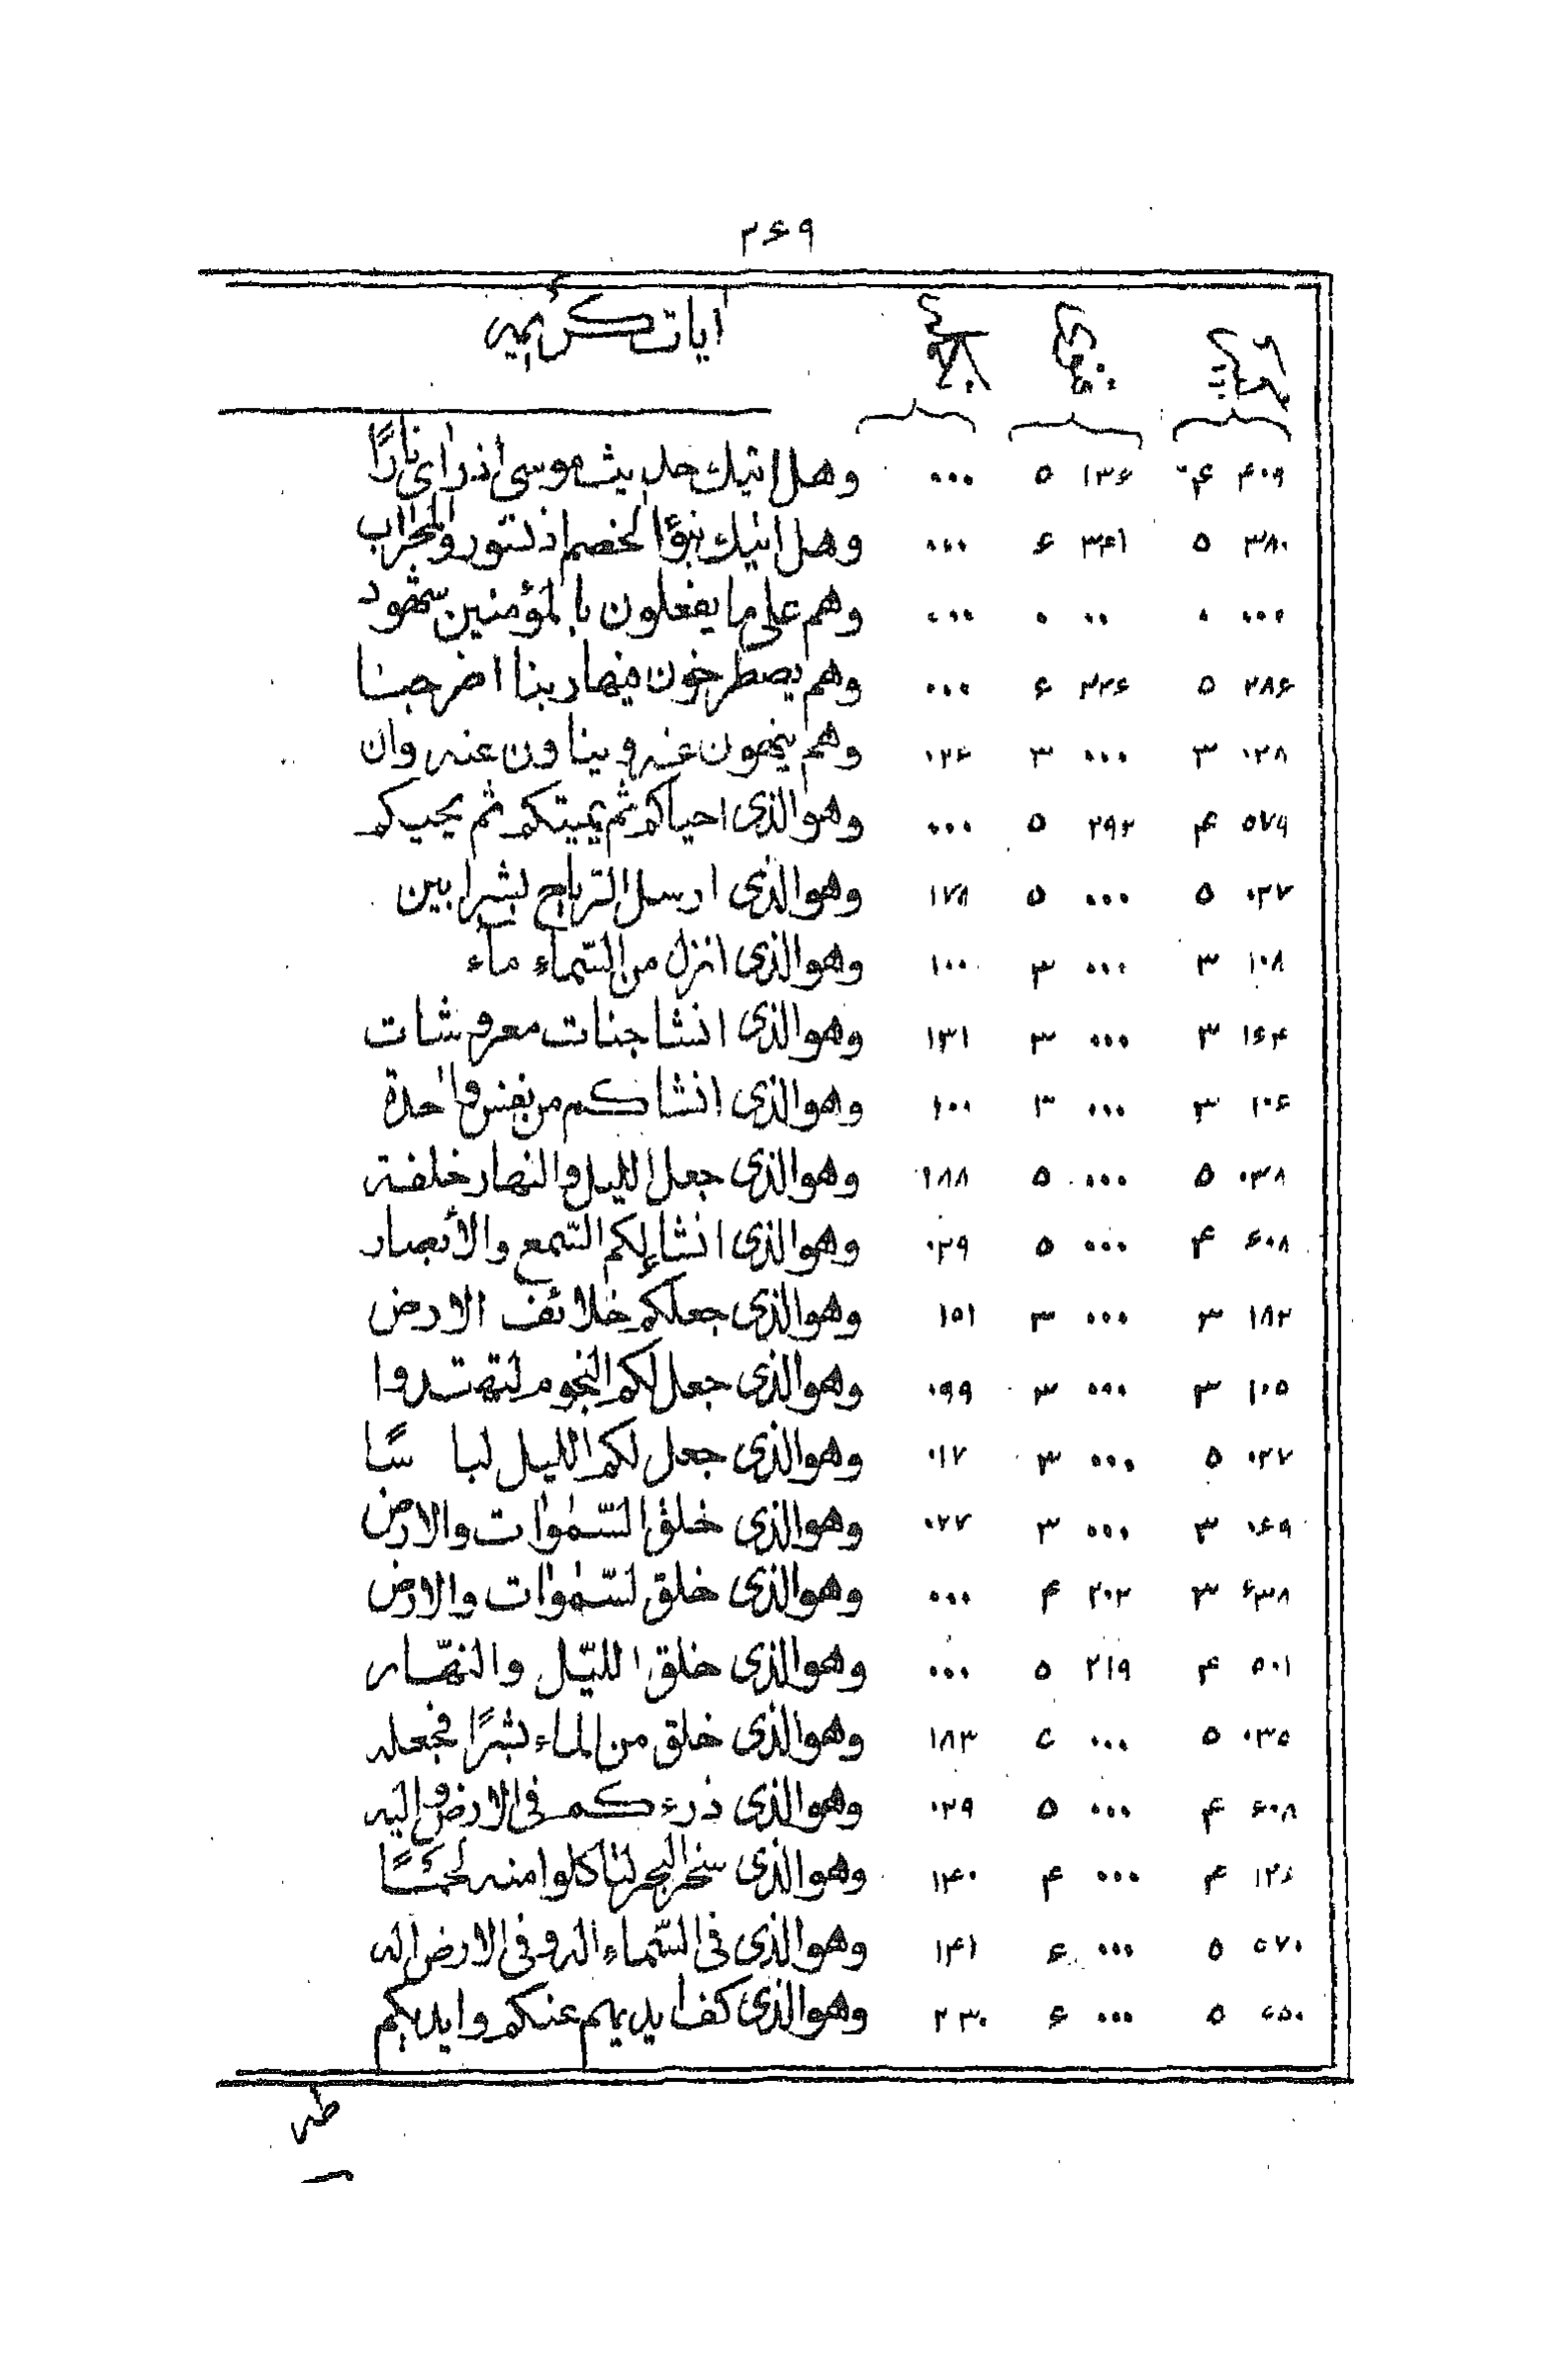 ۲۶۹
آیات کریمه
۴۰۹ ۴ ۱۳۶ ۵ ۰۰۰ وهل اتیك حدیث موسی اذ رای نارًا
۳۸۰ ۵ ۳۴۱ ۶ ۰۰۰ وهل اتیك نبؤا الخصم اذ تسوروالمحراب
۰۰۰ ۰ ۰۰ ۰ ۰۰۰ وهم علی ما یفعلون بالمؤمنین شهود
۲۸۶ ۵ ۲۲۶ ۶ ۰۰۰ وهم یصطرخون فیها ربنا اخرجنا
۰۲۸ ۳ ۰۰۰ ۳ ۰۲۴ وهم ینهون عنه و ینا ون عنه وان
۵۷۹ ۴ ۲۹۲ ۵ ۰۰۰ وهوالذی احیاکم ثم یمیتکم ثم یحییکم
۰۲۷ ۵ ۰۰۰ ۵ ۱۷۸ وهوالذی ارسل الریاح بشرا بین
۱۰۸ ۳ ۰۰۰ ۳ ۱۰۰ وهوالذی انزل من السّماء ماء
۱۶۴ ۳ ۰۰۰ ۳ ۱۳۱ وهوالذی انشا جنات معروشات
۱۰۶ ۳ ۰۰۰ ۳ ۱۰۰ وهوالذی انشاکم من نفس واحدة
۰۳۸ ۵ ۰۰۰ ۵ ۱۸۸ وهوالذی جعل اللیل والنهار خلفة
۶۰۸ ۴ ۰۰۰ ۵ ۰۲۹ وهوالذی انشا لکم السّمع والأبصار
۱۸۲ ۳ ۰۰۰ ۳ ۱۵۱ وهوالذی جعلکم خلائف الارض
۱۰۵ ۳ ۰۰۰ ۳ ۰۹۹ وهوالذی جعل لکم النجوم لتهتدوا
۰۲۷ ۵ ۰۰۰ ۳ ۰۱۷ وهوالذی جعل لکم اللیل لباسًا
۰۶۹ ۳ ۰۰۰ ۳ ۰۲۷ وهوالذی خلق السّموات والارض
۶۳۸ ۳ ۲۰۲ ۴ ۰۰۰ وهوالذی خلق لسّموات والارض
۵۰۱ ۴ ۲۱۹ ۵ ۰۰۰ وهوالذی خلق اللیّل والنهّار
۰۳۵ ۵ ۰۰۰ ۵ ۱۸۳ وهوالذی خلق من الماء بشرًا فجعله
۶۰۸ ۴ ۰۰۰ ۵ ۰۲۹ وهوالذی ذرءکم فی الارض والیه
۴ ۰۰۰ ۴ ۱۴۰ وهوالذی سخر البحر لتاکلوا منه لحمًا
۵۷۰ ۵ ۰۰۰ ۶ ۱۴۱ وهوالذی فی السّماء اله و فی الارض اله
۵ ۰۰۰ ۶ ۲۳۰ وهوالذی کف ایدیهم عنکم وایدیکم